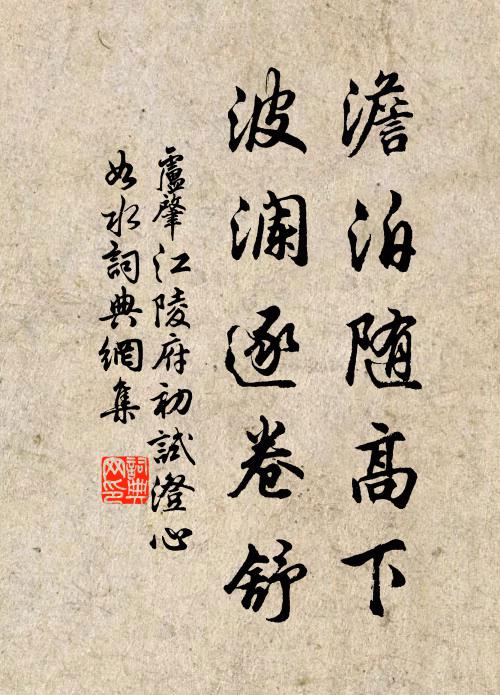 澹泊随高下
波澜逐卷舒
盧肇江陵府初試澄心
如水詞典網集
詞典
网印